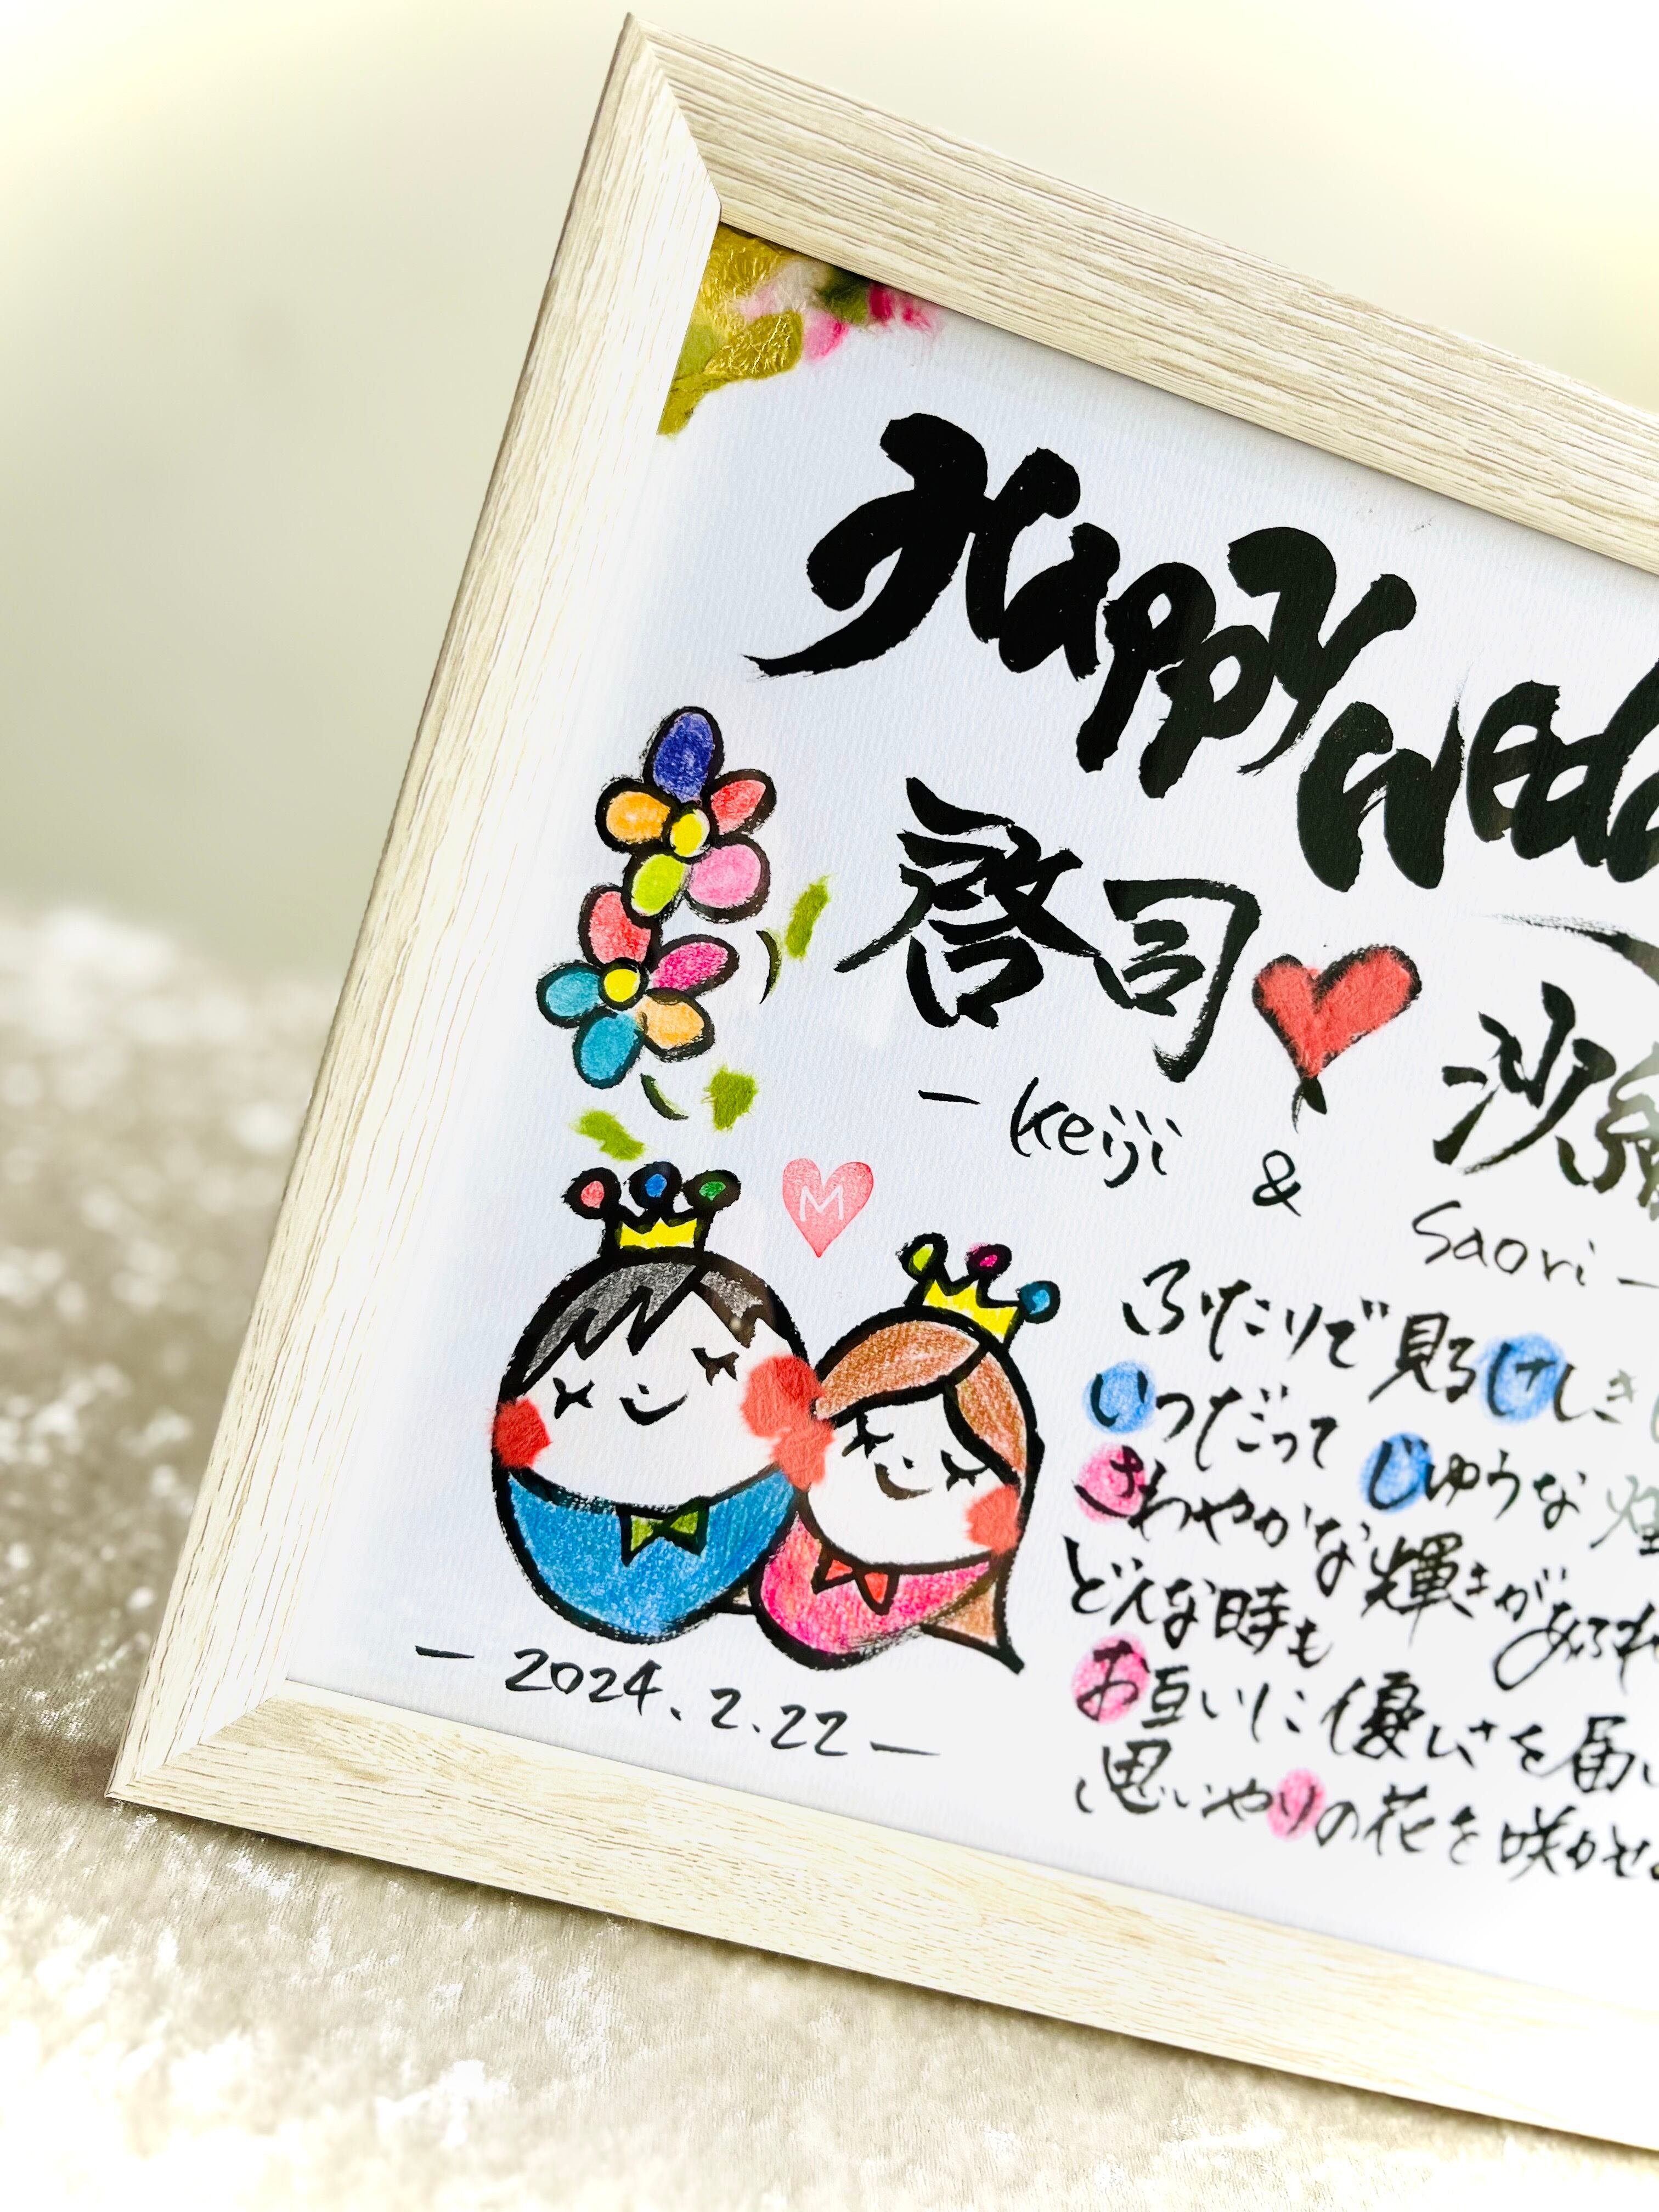 Happy Wedd
啓司 沙織
- Keiji & Saori -
M
ふたりで見るけしき
いつだってじゆうな
さわやかな輝きがあふれ
どんな時も
お互いに優しさを届
思いやりの花を咲かせ
- 2024.2.22 -